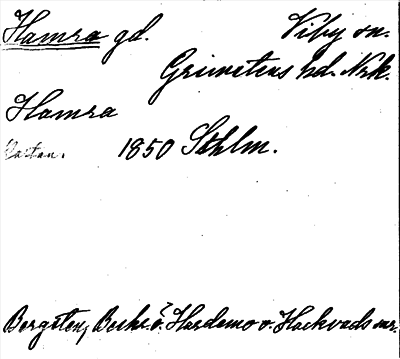 Hamra gd. Viby sn.
Grimstens hd. Nrk.
Hamra
Kartan. 1850 Sthlm.
Bergsten, Beskr. ö. Hardemo o. Hackvads snr.